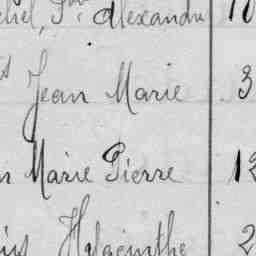 Alexandre 10
Jean Marie 3
Marie Pierre 12
Hyacinthe 2